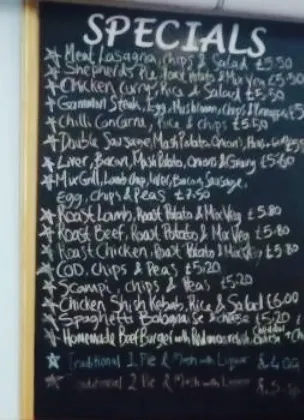 SPECIALS
Meat Lasagna, Chips & Salad £5.50
Shepherds Pie, Roast Potato & Mix Veg £5.50
Chicken Curry, Rice & Salad £5.50
Gammon Steak, Egg, Mushroom, Chips & Pineapple
Chilli Con Carne, Rice & Chips £5.50
Double Sausage, Mash Potato, Onions, Peas
Liver, Bacon, Mash Potato, Onions & Gravy £5.60
Mix Grill, Lamb chop, liver, Bacon, Sausage,
Egg, Chips & Peas £7.50
Roast Lamb, Roast Potato & Mix Veg £5.80
Roast Beef, Roast Potato & Mix Veg £5.80
Roast Chicken, Roast Potato & Mix Veg £5.80
COD, Chips & Peas £5.20
Scampi, Chips & Peas £5.20
Chicken Shish Kebab, Rice & Salad £6.00
Spaghetti Bolognaise & cheese £5.20
Homemade Beef Burger with Red onion
Traditional 1 Pie & Mash with Liquor
Traditional 2 Pie & Mash with Liquor